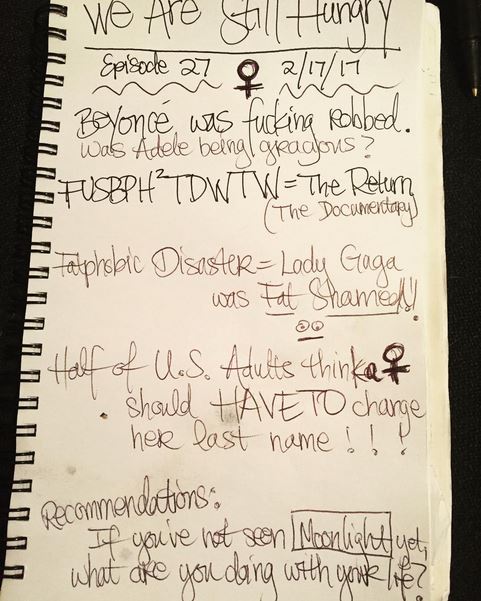 We Are Still Hungry
Episode 27 ♀ 2/17/17
Beyoncé was fucking robbed.
Was Adele being gracious?
FUSBPH²TDWTW = The Return
(The Documentary)
Fatphobic Disaster = Lady Gaga
was Fat Shamed!
Half of U.S. Adults think a ♀
should HAVE TO change
her last name!!!
Recommendations:
If you've not seen Moonlight yet,
what are you doing with your life?